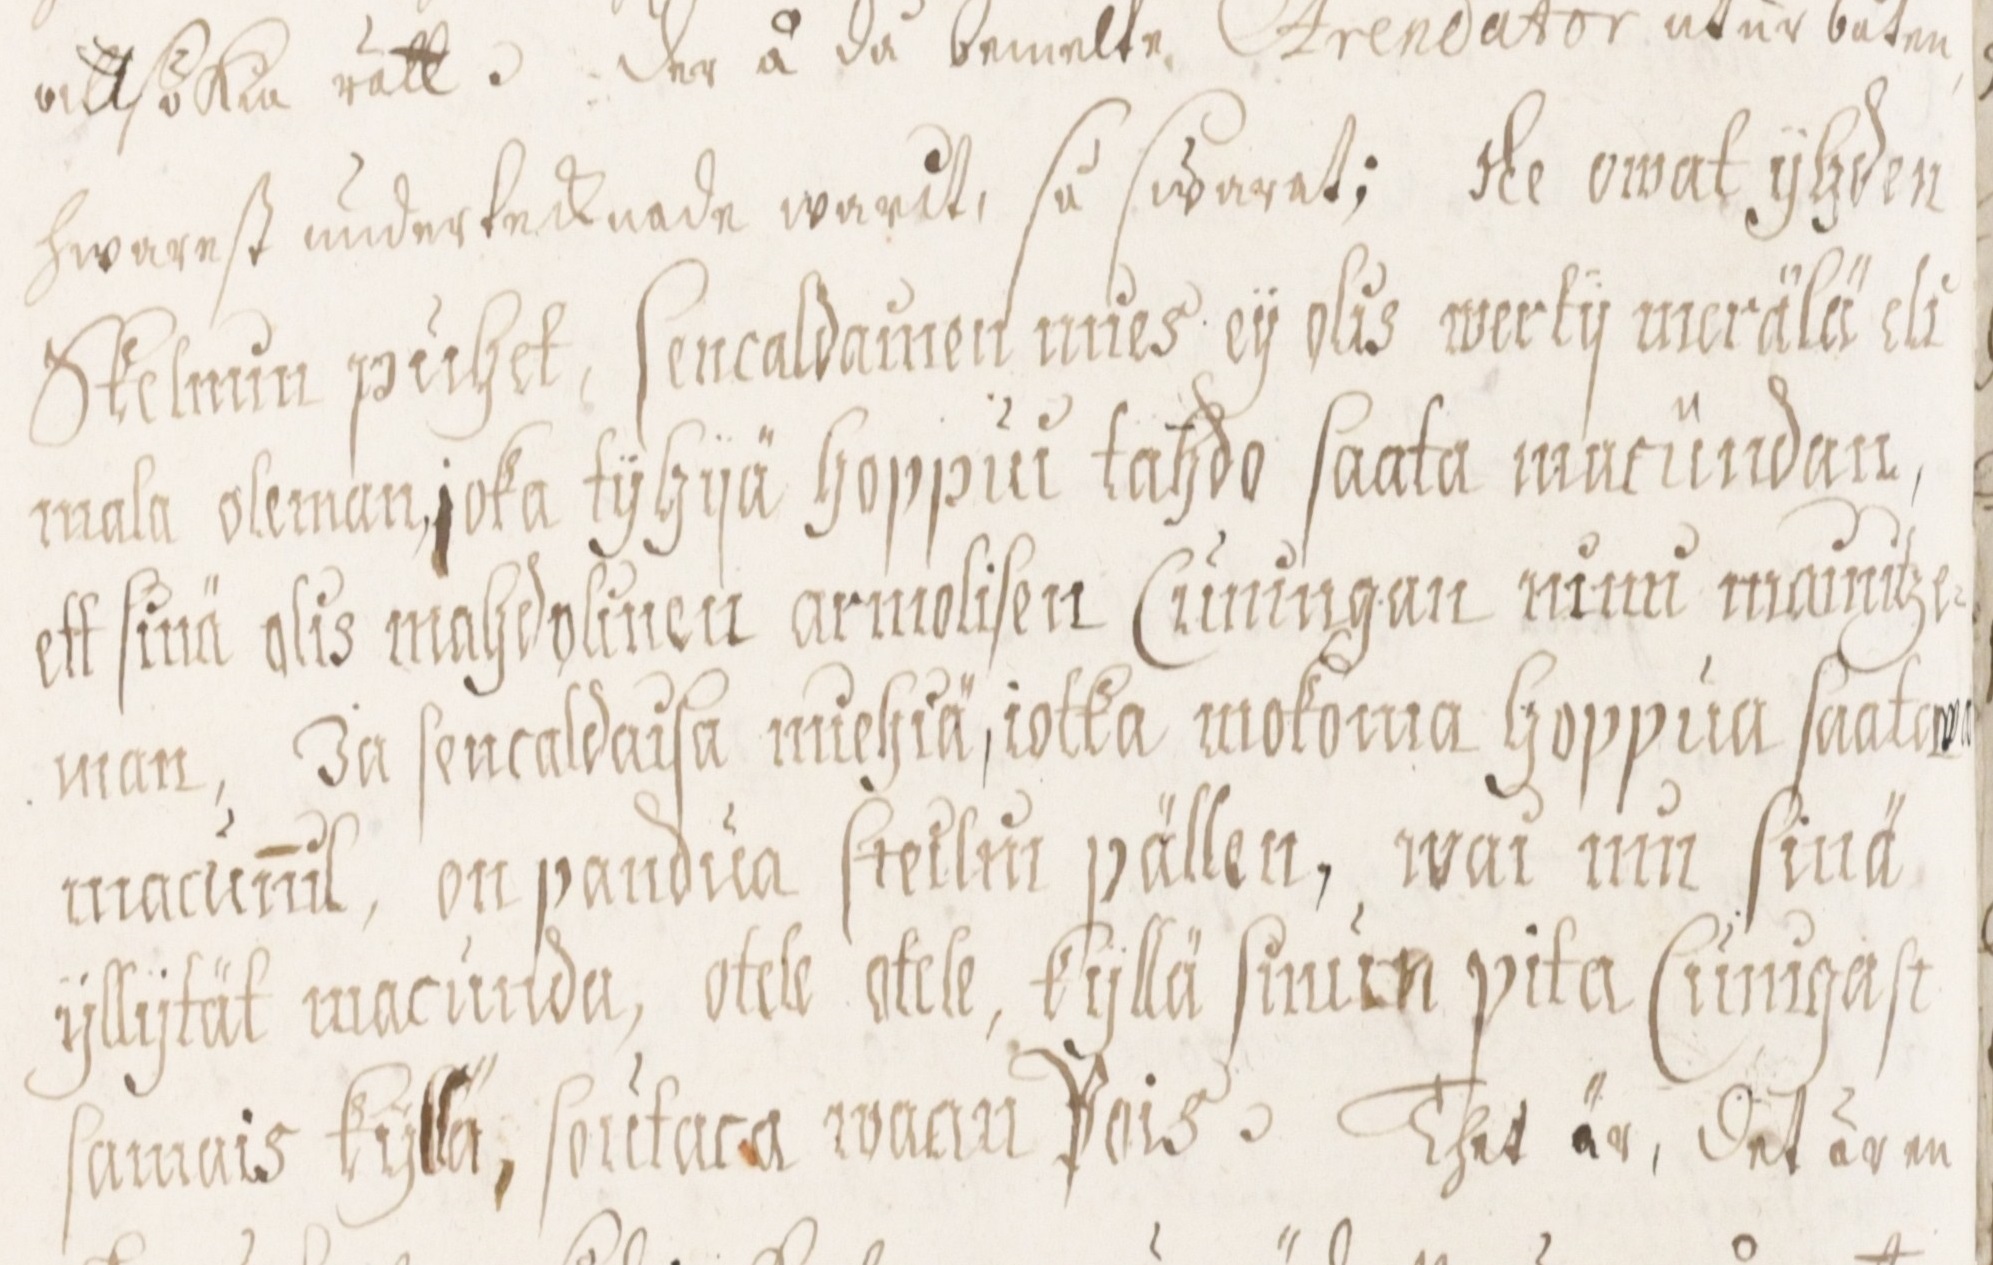 willsökia rätt. Der å då bemelte Arendator utur båten,
hwarest underteknade warit, så swarat; Ne owat ÿhden
Skelmin puhet, sencaldainen mies eÿ olis wertÿ merälä eli
mala oleman, joka tÿhÿä hoppui tahdo saata macundan,
ett sinä olis mahdolinen armolisen Cuningan nimi mainitze-
man, Ja sencaldaisa miehiä, iotka mokoma hoppua saatawa
macunnis, on pandua steilin pällen, wai nin sinä
ÿllÿtät macunda, otele otele, kÿllä sinun pita Cunigast
samais kÿllä, soutaca waan Pois. Thet är, Det är en